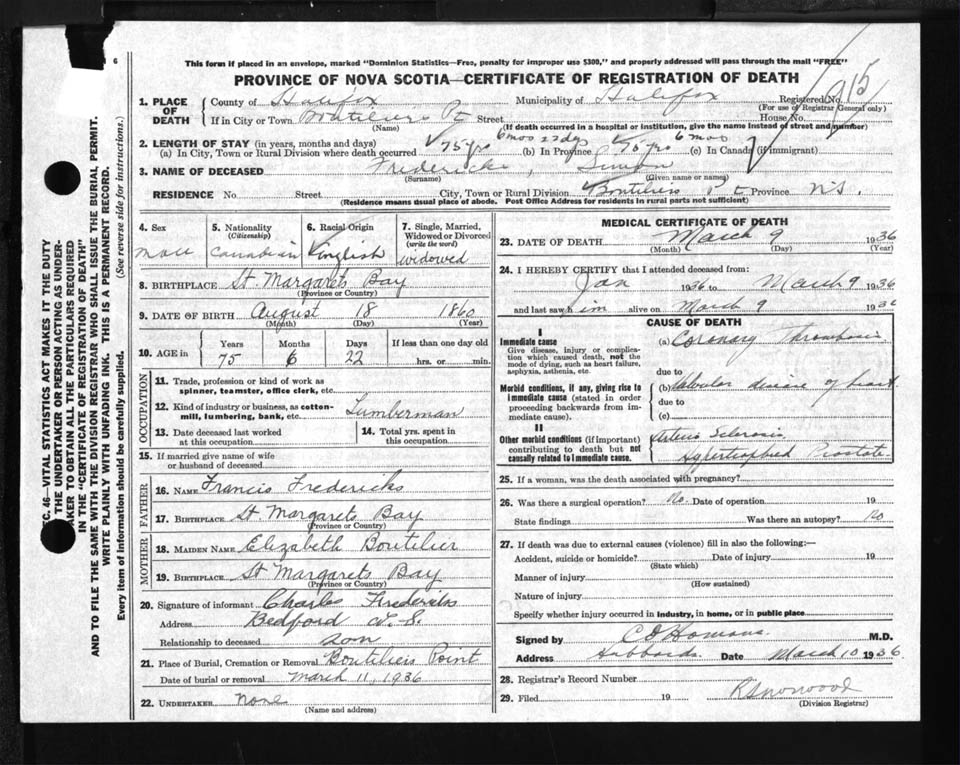 6
This form if placed in an envelope, marked "Dominion Statistics—Free, penalty for improper use $300," and properly addressed will pass through the mail "FREE"
PROVINCE OF NOVA SCOTIA—CERTIFICATE OF REGISTRATION OF DEATH
1. PLACE OF DEATH
County of Halifax Municipality of Halifax Registered No. 1915
(For use of Registrar General only)
If in City or Town Boutiliers Pt Street House No.
(Name) (If death occurred in a hospital or institution, give the name instead of street and number)
2. LENGTH OF STAY (in years, months and days) 6 mos 22 dys 6 mos
(a) In City, Town or Rural Division where death occurred 75 yrs (b) In Province 75 yrs (c) In Canada (if immigrant)
3. NAME OF DECEASED Fredericks, Simeon
(Surname) (Given name or names)
RESIDENCE No. Street City, Town or Rural Division Boutiliers Pt Province N.S.
(Residence means usual place of abode. Post Office Address for residents in rural parts not sufficient)
4. Sex
male
5. Nationality
(Citizenship)
Canadian
6. Racial Origin
English
7. Single, Married, Widowed or Divorced
(write the word)
widowed
8. BIRTHPLACE St. Margarets Bay
(Province or Country)
9. DATE OF BIRTH August 18 1860
(Month) (Day) (Year)
10. AGE in
Years Months Days If less than one day old
75 6 22 hrs. or min.
OCCUPATION
11. Trade, profession or kind of work as spinner, teamster, office clerk, etc.
12. Kind of industry or business, as cotton-mill, lumbering, bank, etc. Lumberman
13. Date deceased last worked at this occupation
14. Total yrs. spent in this occupation
15. If married give name of wife or husband of deceased
FATHER
16. NAME Francis Fredericks
17. BIRTHPLACE St. Margarets Bay
(Province or Country)
MOTHER
18. MAIDEN NAME Elizabeth Boutilier
19. BIRTHPLACE St Margarets Bay
(Province or Country)
20. Signature of informant Charles Fredericks
Address Bedford N.S.
Relationship to deceased son
21. Place of Burial, Cremation or Removal Boutiliers Point
Date of burial or removal march 11, 1936
22. UNDERTAKER none
(Name and address)
MEDICAL CERTIFICATE OF DEATH
23. DATE OF DEATH March 9 1936
(Month) (Day) (Year)
24. I HEREBY CERTIFY that I attended deceased from:
Jan 1936 to March 9 1936
and last saw him alive on March 9 1936
CAUSE OF DEATH
I
Immediate cause
Give disease, injury or complication which caused death, not the mode of dying, such as heart failure, asphyxia, asthenia, etc.
(a) Coronary Thrombosis
due to
Morbid conditions, if any, giving rise to immediate cause (stated in order proceeding backwards from immediate cause).
(b) Valvular disease of heart
due to
(c)
II
Other morbid conditions (if important) contributing to death but not causally related to immediate cause.
Arterio Sclerosis
Hypertrophied Prostate.
25. If a woman, was the death associated with pregnancy?
26. Was there a surgical operation? No Date of operation 19
State findings Was there an autopsy? No
27. If death was due to external causes (violence) fill in also the following:—
Accident, suicide or homicide? Date of injury 19
(State which)
Manner of injury
(How sustained)
Nature of injury
Specify whether injury occurred in industry, in home, or in public place
Signed by C D Homans. M.D.
Address Hubbards. Date March 10 1936
28. Registrar's Record Number
29. Filed 19 R Norwood
(Division Registrar)
C. 46—VITAL STATISTICS ACT MAKES IT THE DUTY
THE UNDERTAKER OR PERSON ACTING AS UNDER-
TAKER TO OBTAIN ALL THE PARTICULARS REQUIRED
IN THE "CERTIFICATE OF REGISTRATION OF DEATH"
AND TO FILE THE SAME WITH THE DIVISION REGISTRAR WHO SHALL ISSUE THE BURIAL PERMIT.
WRITE PLAINLY WITH UNFADING INK. THIS IS A PERMANENT RECORD.
Every item of information should be carefully supplied. (See reverse side for instructions.)